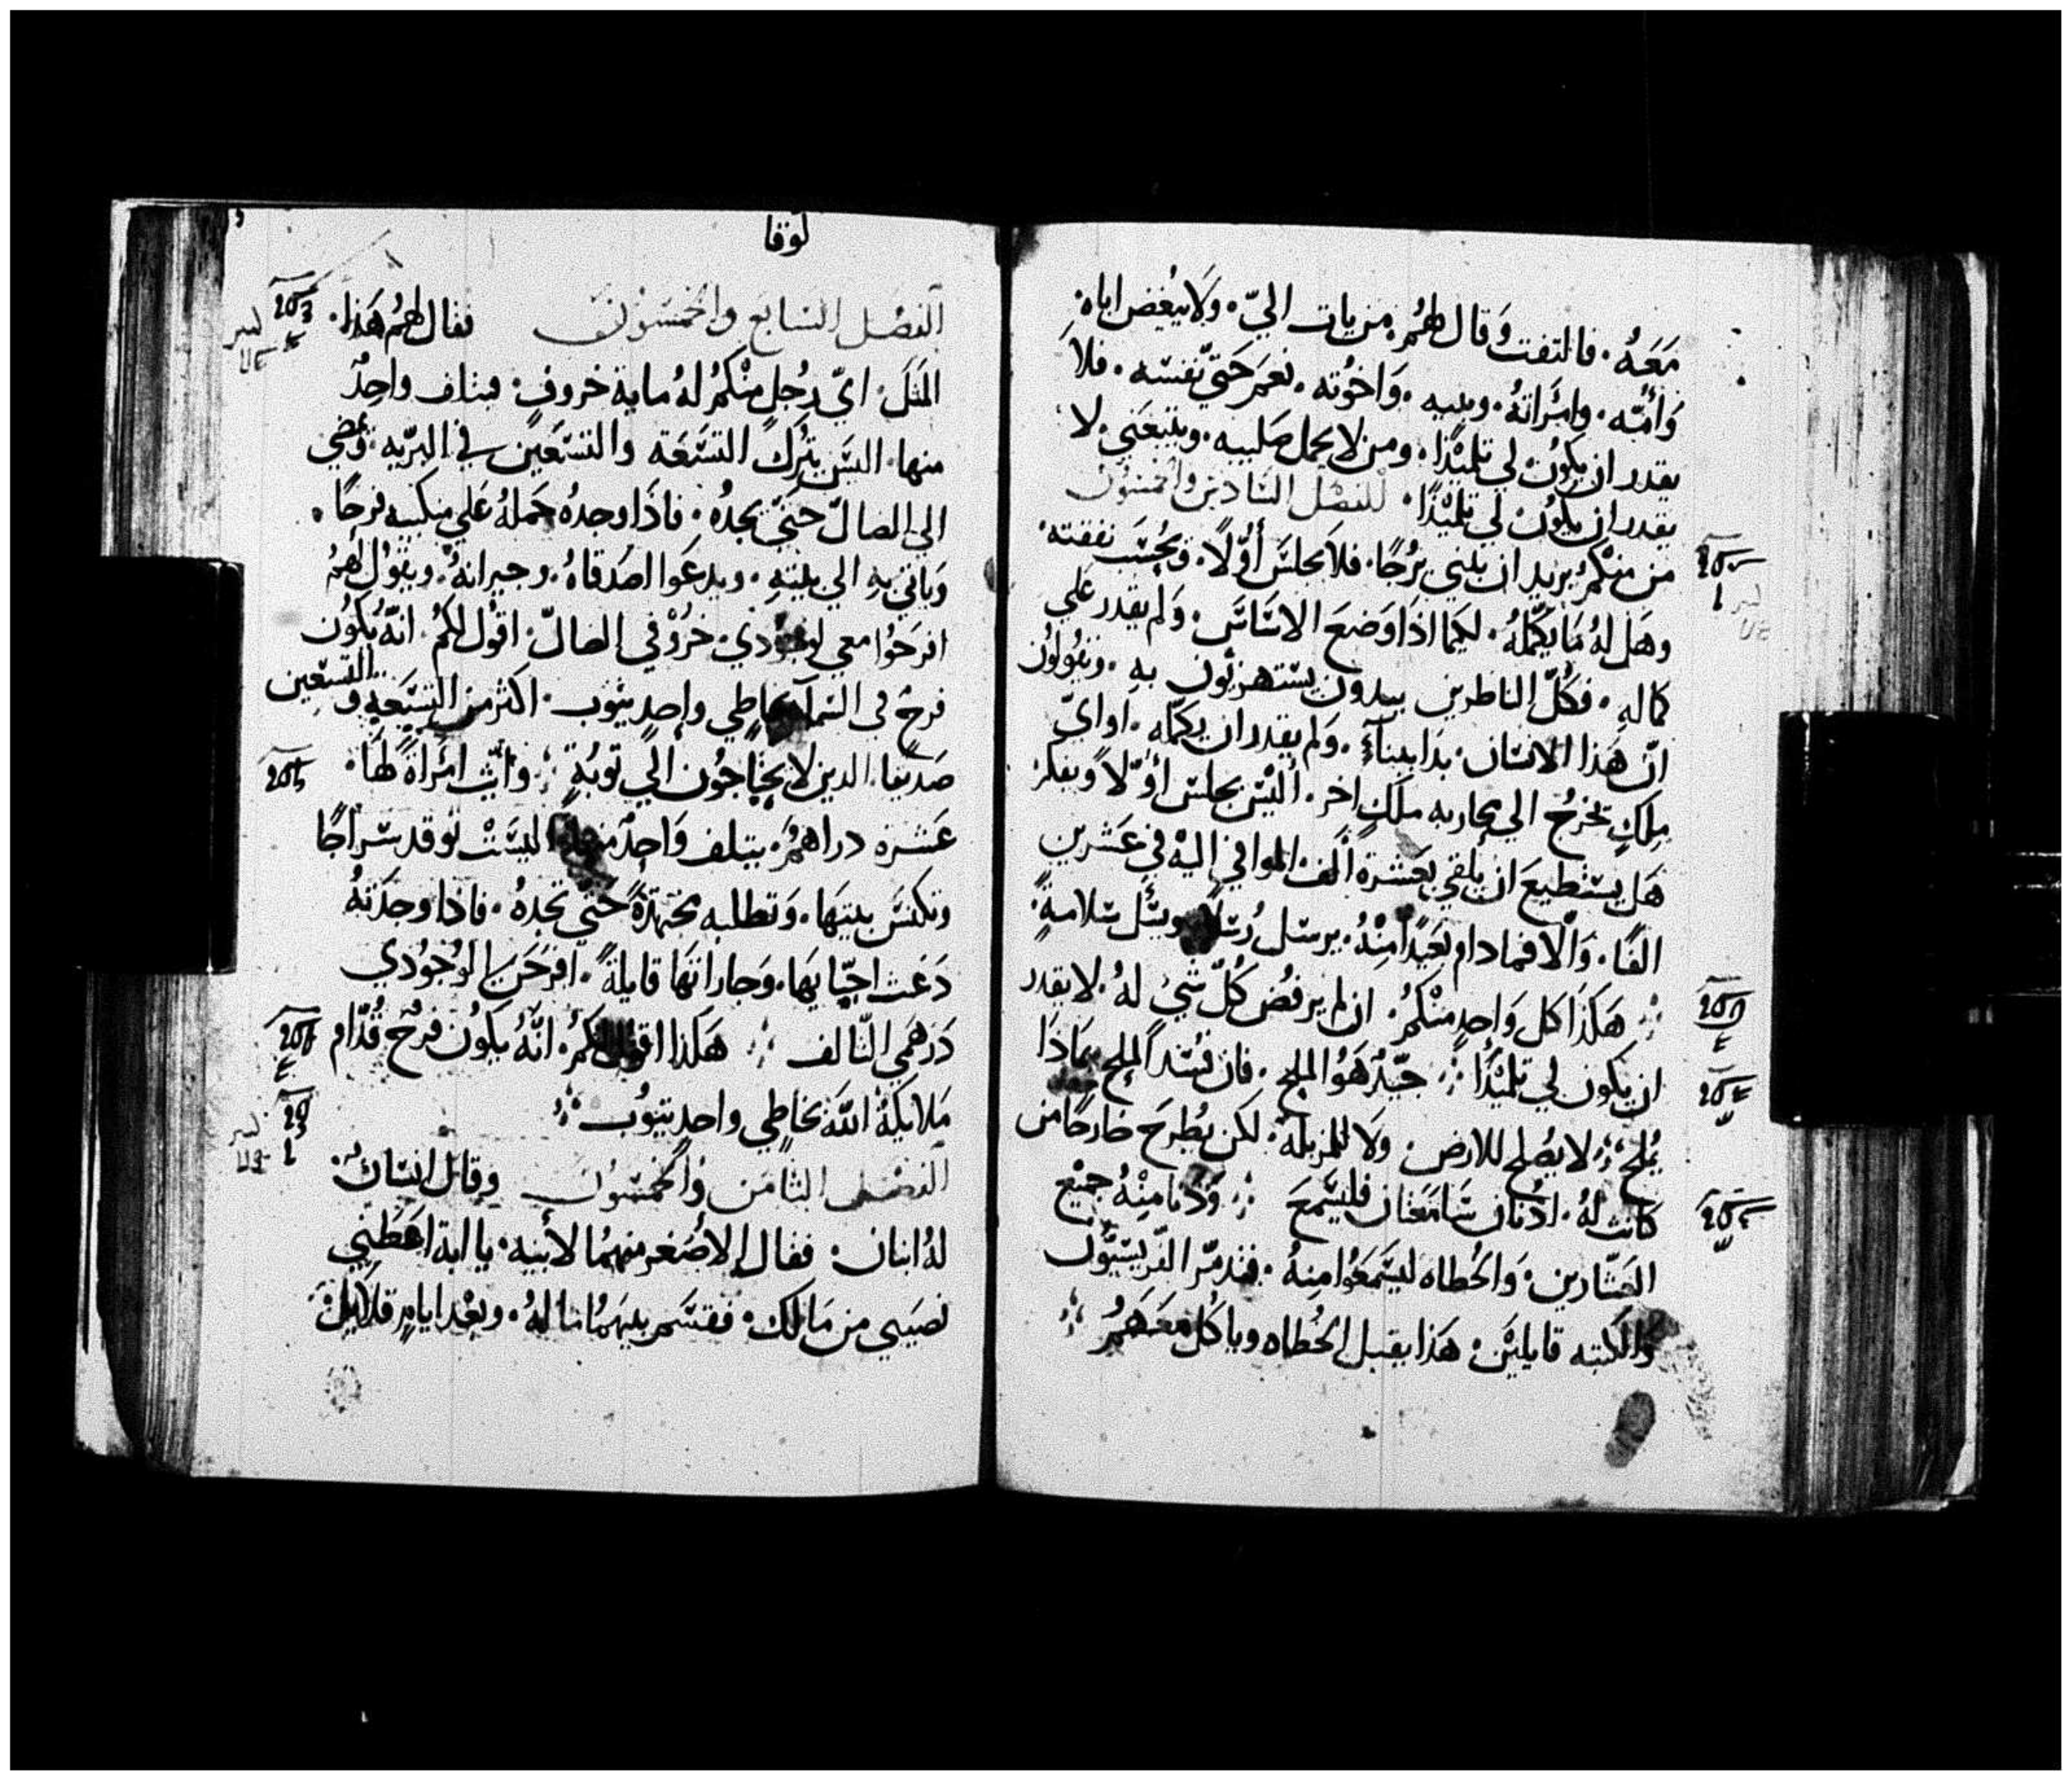 مَعَهُ. فالتفت وَقال لهُم. من يات اليّ. وَلا يبُغض اباه.
وَأُمّه. وامرَاتهُ. وبنيه. وَاخوُته. نعم حَتيّ نفسَه. فلاَ
يقدر ان يكوُن لي تلميْذًا. ومن لا يحمل صَليبه. ويتبعَني. لا
يقدر ان يكوُن لي تلميْذًا. الفصْل السَّادسْ والخمسُون
من منْكمُ يريد ان يبني برُجًا. فلاَ يجلسَ أوَّلاً. وَيحُسَب نفقته.
وهَل لهُ مَا يكمّلهُ. لكيما اذَا وَضعَ الاسَاسَ. وَلم يقدر عَلي
كماله. فكُلّ الناطرين يبدون يسَتهزيُون به. ويقولوُن
انّ هَذا الانسَان. بدَا ببنآءٍ. وَلم يقدر ان يكمله. او ايّ
ملِكٍ يخرُج الي محاربه ملكٍ اخر. أليْسَ يجلسَ اوّلاً ويفكر
هَل يستَطيعَ ان يلقي بعَشرة ألف. الموافي اليهْ في عَشرين
الفًا. وَالْا فما دام بعَيدًا منْهُ. يرسَل رُسَلاً ويسَل سَلامةٍ.
هَكذَا كل وَاحدٍ منْكمُ. ان لم يرفُض كُلّ شيْ لهُ. لا يقدر
ان يكون لي تلميْذًا جيّدٌ هَوُ الملح. فان فسَد الملح بمَاذَا
يُملح لا يصُلح للارض. وَلا للمزبله. لكن يُطرحَ خارجًا من
كانت لهُ. ادُنان سَامعَتان فليسَمعَ وَدَنا منْهُ جميْع
العَشّارين. وَالخُطاه ليسَمعَوُا منهُ. فتدمّر الفرّيسيّوُن
وَالكتبه قايلين. هَذا يقبل الخُطاه وياكُل معَهَمُ
لوقا
الفصْل السَّابع والخمسَون فقال لهُم هَذَا.
المثَلَ. ايّ رجُلٍ منْكمُ لهُ ماية خروف. فيتلف واحِدٌ
منها. اليسَ يترُكَ التسَعَة والتسَعَين في البرّيه. وَيمُضي
الي الضالّ حَتيّ يجدهُ. فاذَا وجدهُ حمَلهُ عَلي منكبيه فرحًا.
وَياتي به الي بيته. ويدعَوا اصَدقاهُ. وجيرانهُ. ويقوُل لهمُ
افرحَوُا معي لوجوُدي. خرُوْفي الضالّ. اقوُل لكمُ. انهُ يكوُن
فرحٌ في السَمآء بخاطي واحدٍ يتوُب. اكثر من التسَعَه و التسَعين
صَديّقا. الدين لا يحتَاجوُن الي توبَةٍ وايّت امرَاةً لهَا.
عَشرة دراهمُ. يتلف وَاحدٌ منها اليسَتْ توقد سَراجًا
وتكنسَ بيتهَا. وَتطلبه مجتهدةً حَتيّ تجدهُ. فاذا وجدَتهُ
دَعَت احبّايهَا. وَجاراتهَا قايلةً. افرحَن لوجُوُدي
دَرهَمي التّالف هَكذا اقول لكمُ. انّهُ يكوُن فرحٌ قُدّام
مَلايكةْ اللّهَ بخاطي واحدٍ يتوُب
الفصْل الثّامن والخمسَون وقال انسَانٌ.
لهُ ابنان. فقال الأصُغر منهمُا لأبيه. يا ابة اعَطني
نصَيبي من مَالك. فقسَم بينهَمُا ما لهُ. وبعْد ايامٍ قلايل.